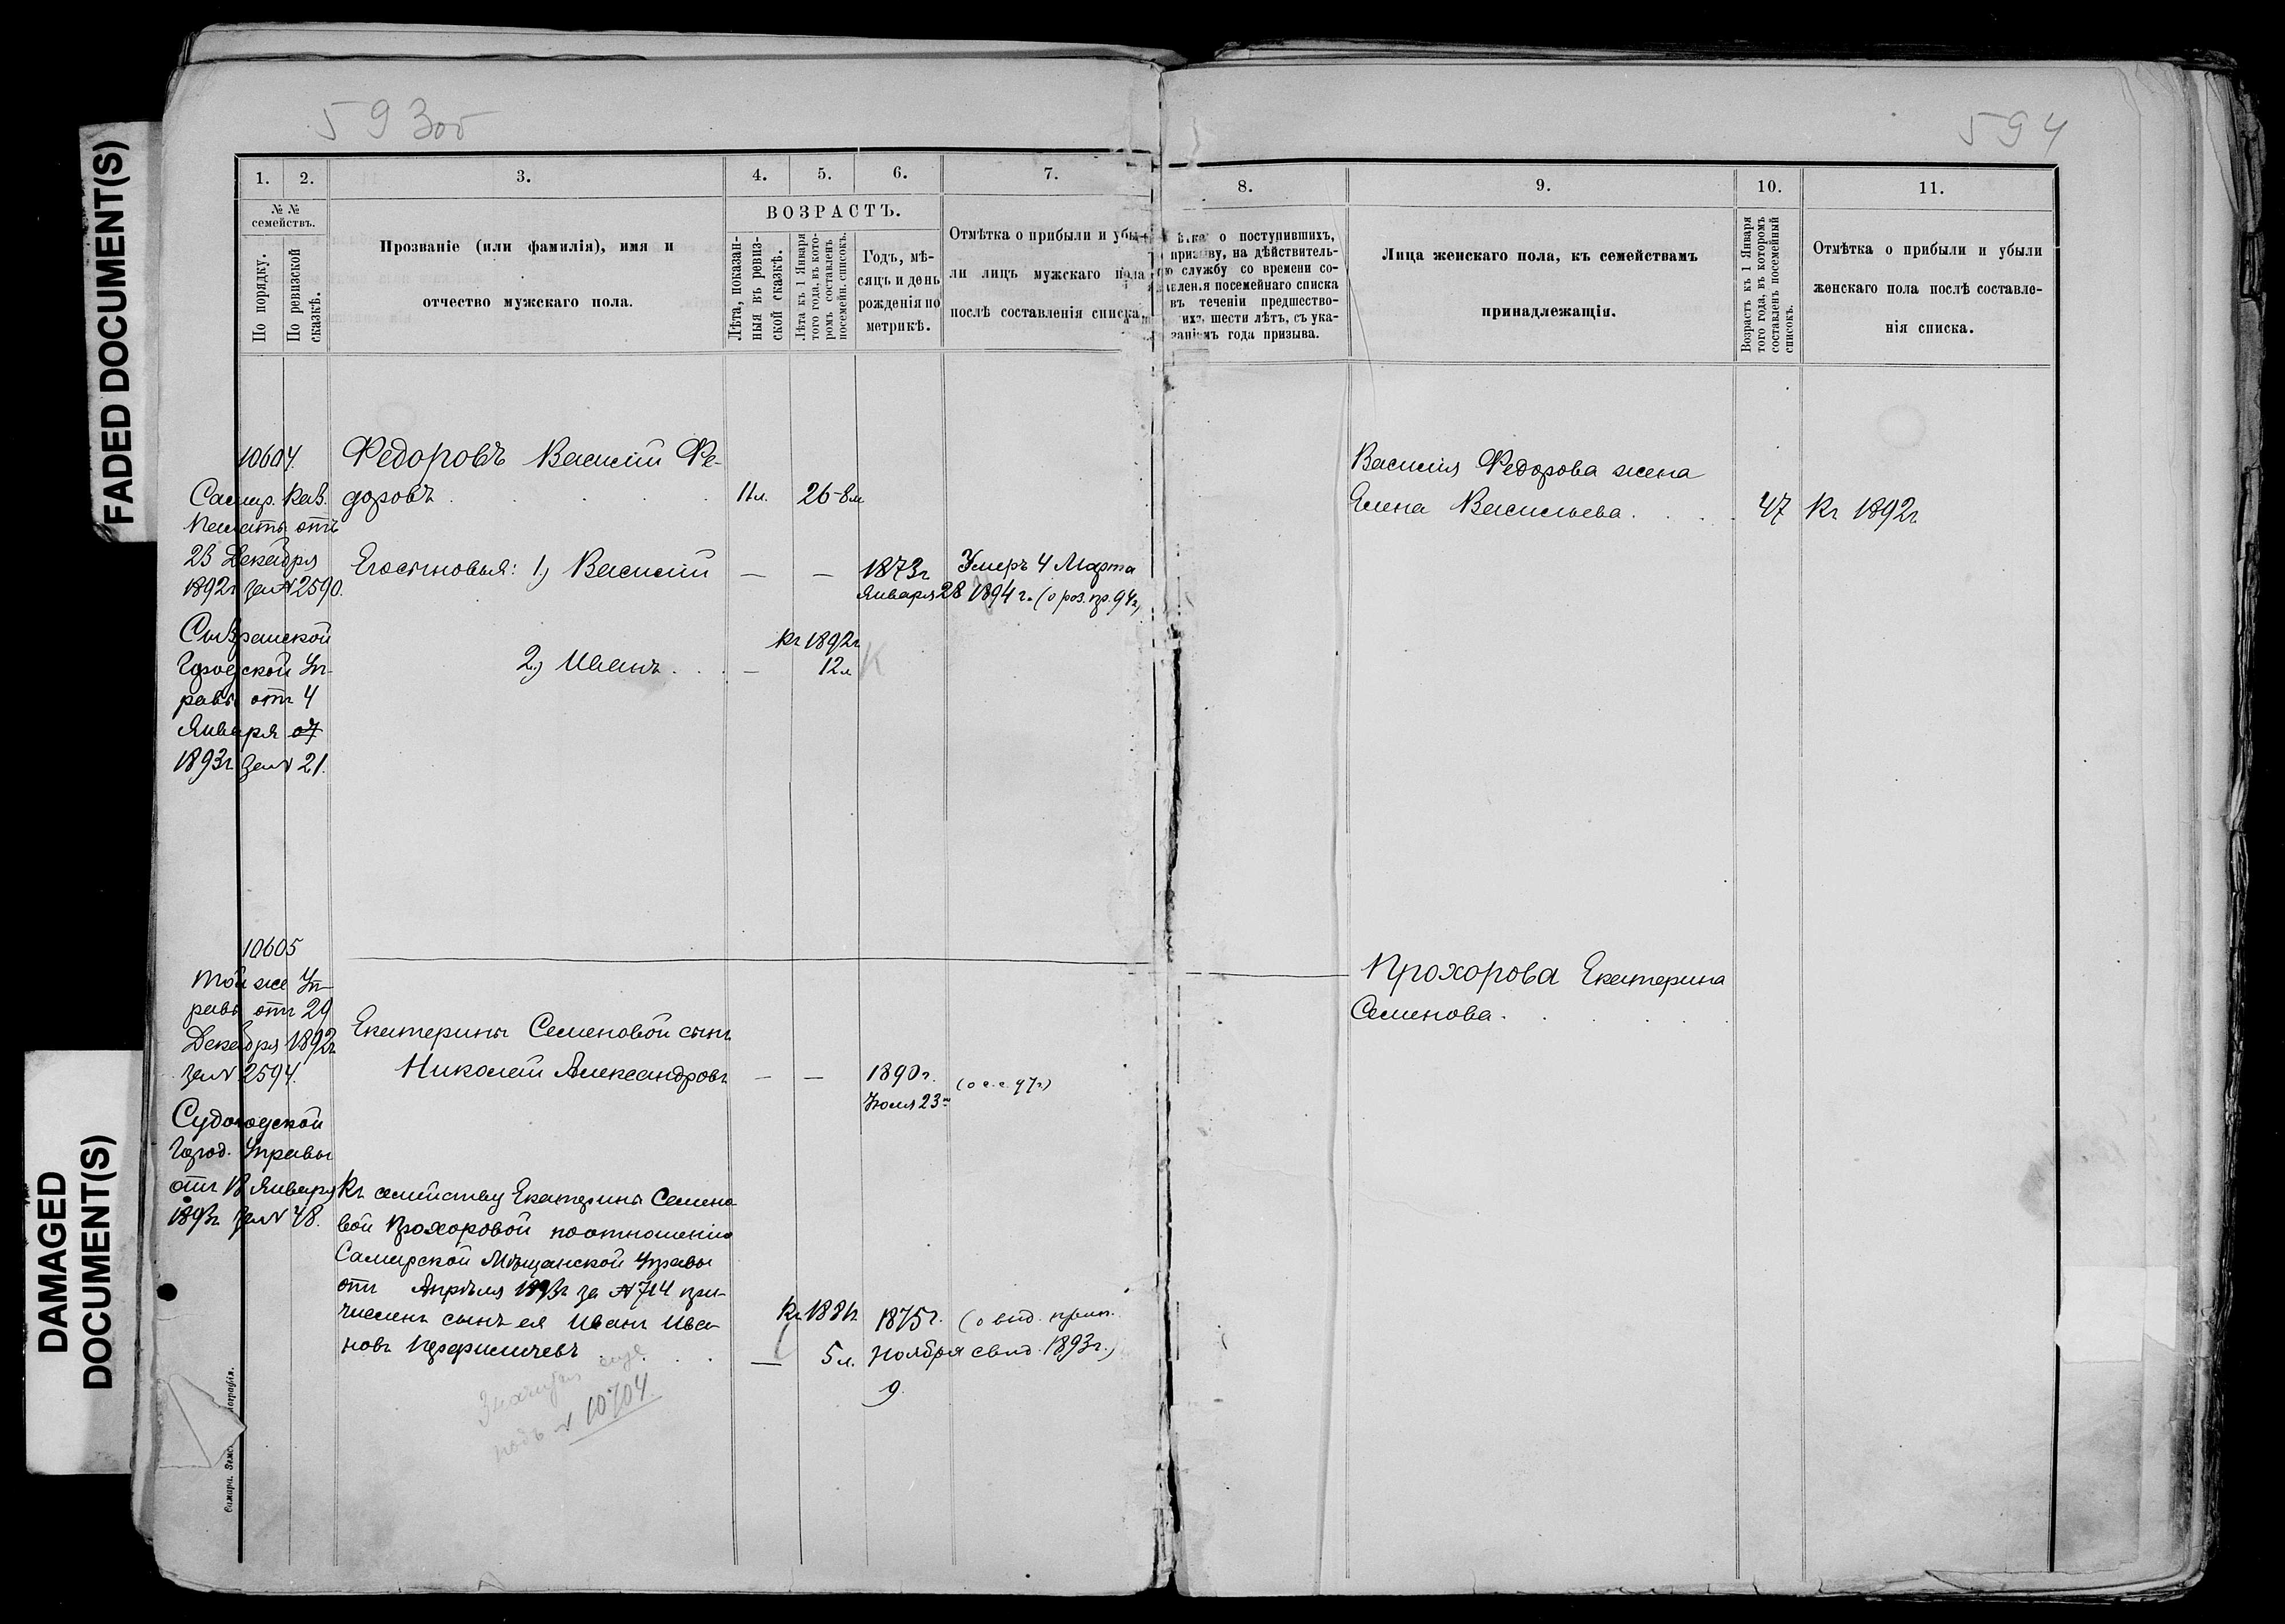 FADED DOCUMENT(S)
DAMAGED
DOCUMENT(S)
593об
1.
2.
3.
4.
5.
6.
7.
№ №
семействъ.
По порядку.
По ревизской
сказкѣ.
Прозваніе (или фамилія), имя и
отчество мужскаго пола.
ВОЗРАСТЪ.
Лѣта, показан-
ныя въ ревиз-
ской сказкѣ.
Лѣта къ 1 Января
того года, въ кото-
ромъ составленъ
посемейн. списокъ.
Годъ, мѣ-
сяцъ и день
рожденія по
метрикѣ.
Отмѣтка о прибыли и убы-
ли лицъ мужскаго пола
послѣ составленія списка.
10604.
Самар. Каз.
Палаты отъ
23 Декабря
1892г за № 2590.
Сызранской
Городской Уп-
равы отъ 4
Января
1893г за № 21.
Федоровъ Василій Фе-
доровъ
11л.
26-8м
Его сыновья: 1) Василій
— —
1873г
Января 28
Умеръ 4 Марта
1894 г.
2) Иванъ
—
Къ 1892г
12л
К
10605
Той же Уп-
равы отъ 29
Декабря 1892г
за № 2594.
Судогодской
Город. Управы
отъ 18 Января
1893г за № 48.
Екатерины Семеновой сынъ
Николай Александровъ
— —
1890г.
Іюля 23
Къ семейству Екатерины Семено-
вой Прохоровой по отношенію
Самарской Мѣщанской Управы
отъ Апрѣля 1893г за № 714 при-
численъ сынъ ея Иванъ Ива-
новъ
—
Къ 1881г
5л.
1875г.
Ноября
9.
1893г.)
подъ № 10704.
Самара. Земс
594
8.
9.
10.
11.
о поступившихъ,
призыву, на дѣйствитель-
службу со времени со-
ставленія посемейнаго списка
въ теченіи предшество-
ихъ шести лѣтъ, съ ука-
заніемъ года призыва.
Лица женскаго пола, къ семействамъ
принадлежащія.
Возрастъ къ 1 Января
того года, въ которомъ
составленъ посемейный
списокъ.
Отмѣтка о прибыли и убыли
женскаго пола послѣ составле-
нія списка.
Василія Федорова жена
Елена Васильева
47
Къ 1892г
Прохорова Екатерина
Семенова.